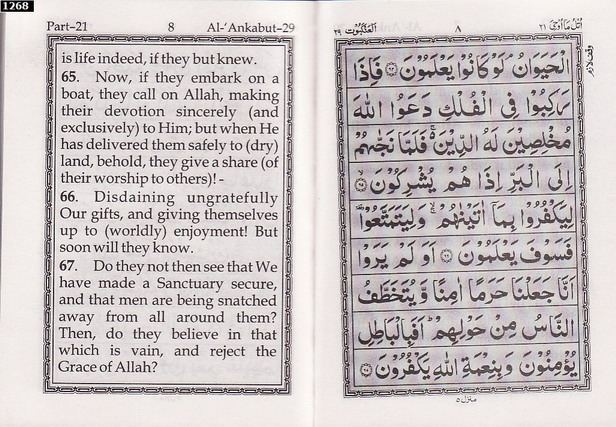 1268
Part-21 8 Al-'Ankabut-29
is life indeed, if they but knew.
65. Now, if they embark on a
boat, they call on Allah, making
their devotion sincerely (and
exclusively) to Him; but when He
has delivered them safely to (dry)
land, behold, they give a share (of
their worship to others)! -
66. Disdaining ungratefully
Our gifts, and giving themselves
up to (worldly) enjoyment! But
soon will they know.
67. Do they not then see that We
have made a Sanctuary secure,
and that men are being snatched
away from all around them?
Then, do they believe in that
which is vain, and reject the
Grace of Allah?
اتل ما اوحی ۲۱ ۸ العنكبوت ۲۹
الْحَيَوَانُ ۘ لَوْ كَانُوْا يَعْلَمُوْنَ ۝ فَاِذَا
رَكِبُوْا فِى الْفُلْكِ دَعَوُا اللهَ
مُخْلِصِيْنَ لَهُ الدِّيْنَ ۚ فَلَمَّا نَجّٰىهُمْ
اِلَى الْبَرِّ اِذَا هُمْ يُشْرِكُوْنَ ۝
لِيَكْفُرُوْا بِمَآ اٰتَيْنٰهُمْ ۙ وَلِيَتَمَتَّعُوْا
فَسَوْفَ يَعْلَمُوْنَ ۝ اَوَ لَمْ يَرَوْا
اَنَّا جَعَلْنَا حَرَمًا اٰمِنًا وَّيُتَخَطَّفُ
النَّاسُ مِنْ حَوْلِهِمْ ؕ اَفَبِالْبَاطِلِ
يُؤْمِنُوْنَ وَبِنِعْمَةِ اللهِ يَكْفُرُوْنَ ۝
وقف لازم
منزل ۵